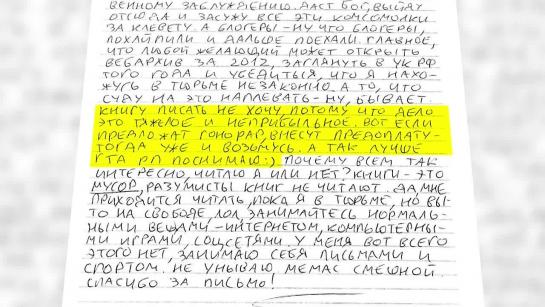 ВЕННОМУ ЗАБЛУЖДЕНИЮ. ДАСТ БОГ, ВЫЙДУ
ОТСЮДА И ЗАСУЖУ ВСЕ ЭТИ КОМСОМОЛКИ
ЗА КЛЕВЕТУ. А БЛОГЕРЫ - НУ ЧТО БЛОГЕРЫ,
ПОХАЙПИЛИ И ДАЛЬШЕ ПОЕХАЛИ. ГЛАВНОЕ,
ЧТО ЛЮБОЙ ЖЕЛАЮЩИЙ МОЖЕТ ОТКРЫТЬ
ВЕБАРХИВ ЗА 2012, ЗАГЛЯНУТЬ В УК РФ
ТОГО ГОДА И УБЕДИТЬСЯ, ЧТО Я НАХО-
ЖУСЬ В ТЮРЬМЕ НЕЗАКОННО. А ТО, ЧТО
СУДУ НА ЭТО НАПЛЕВАТЬ - НУ, БЫВАЕТ.
КНИГУ ПИСАТЬ НЕ ХОЧУ, ПОТОМУ ЧТО ДЕЛО
ЭТО ТЯЖЕЛОЕ И НЕПРИБЫЛЬНОЕ. ВОТ ЕСЛИ
ПРЕДЛОЖАТ ГОНОРАР, ВНЕСУТ ПРЕДОПЛАТУ -
ТОГДА УЖЕ И ВОЗЬМУСЬ. А ТАК ЛУЧШЕ
ГТА РП ПОСНИМАЮ :) ПОЧЕМУ ВСЕМ ТАК
ИНТЕРЕСНО, ЧИТАЮ Я ИЛИ НЕТ? КНИГИ - ЭТО
МУСОР, РАЗУМИСТЫ КНИГ НЕ ЧИТАЮТ. ДА, МНЕ
ПРИХОДИТСЯ ЧИТАТЬ, ПОКА Я В ТЮРЬМЕ, НО ВЫ -
ТО НА СВОБОДЕ, ЛОЛ, ЗАНИМАЙТЕСЬ НОРМАЛЬ-
НЫМИ ВЕЩАМИ - ИНТЕРНЕТОМ, КОМПЬЮТЕРНЫ-
МИ ИГРАМИ, СОЦСЕТЯМИ. У МЕНЯ ВОТ ВСЕГО
ЭТОГО НЕТ, ЗАНИМАЮ СЕБЯ ПИСЬМАМИ И
СПОРТОМ. НЕ УНЫВАЮ. МЕМАС СМЕШНОЙ.
СПАСИБО ЗА ПИСЬМО!